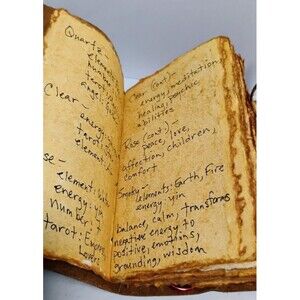 Quartz
element
number
tarot
Clear -
energy
tarot
element
se -
element:
energy:
number:
tarot: Emp
Lover
Clear (cont) -
energy, meditation,
healing, psychic
abilities
Rose (cont.) -
peace, love,
affection, children,
comfort
Smoky -
elements: Earth, Fire
energy: yin
balance, calm, transforms
negative energy to
positive, emotions,
grounding, wisdom